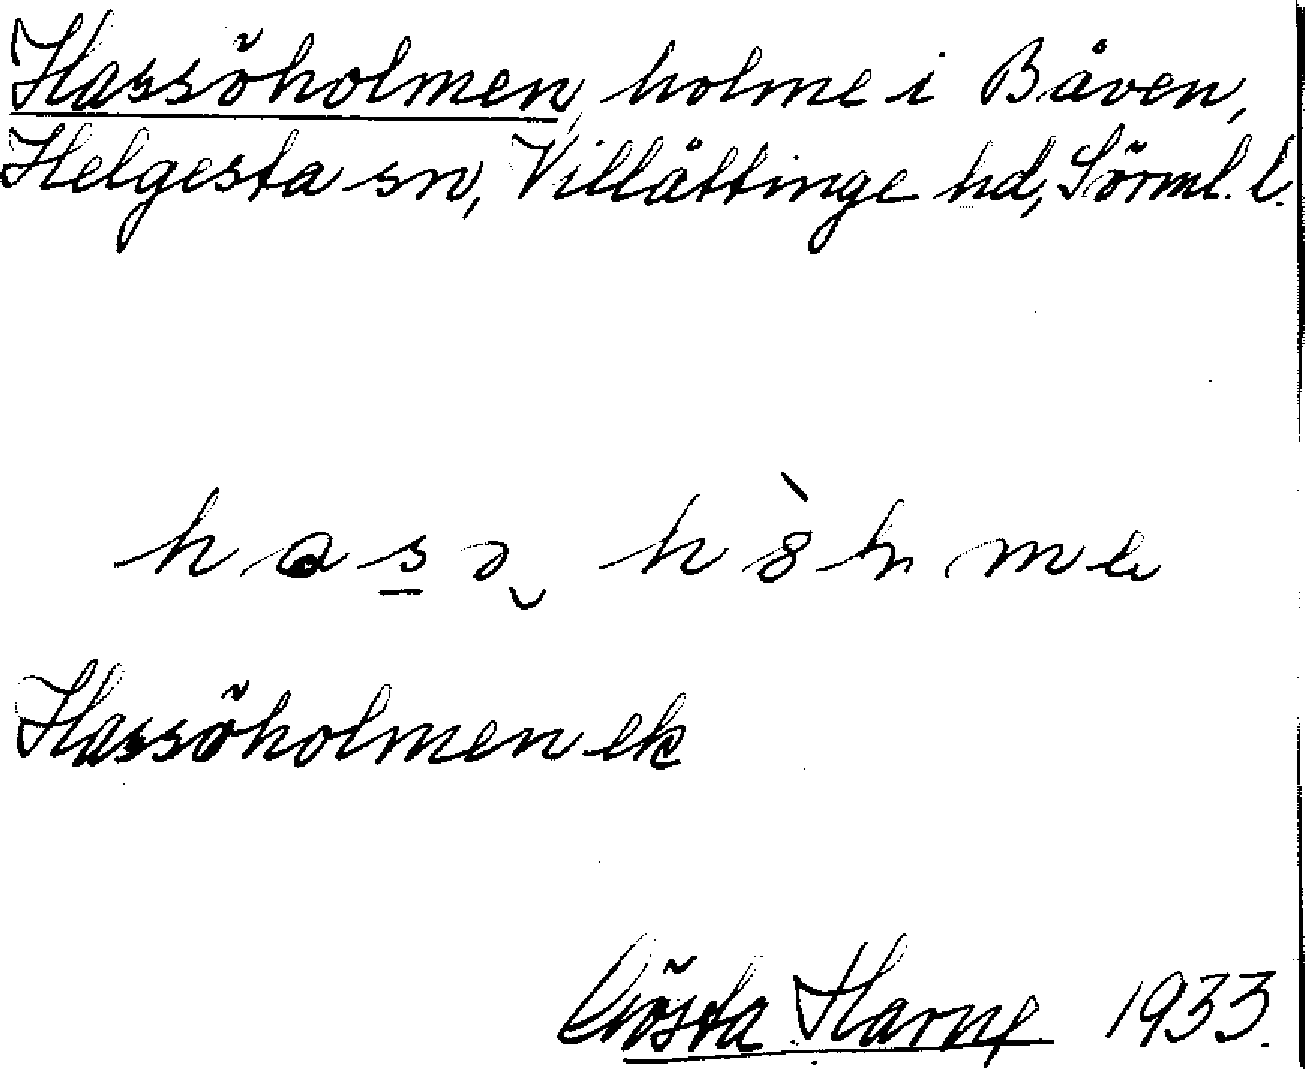 Hassöholmen, holme i Båven,
Helgesta sn, Villåttinge hd, Sörml. l.
Hassöholmen ek
Gösta Harne 1933.